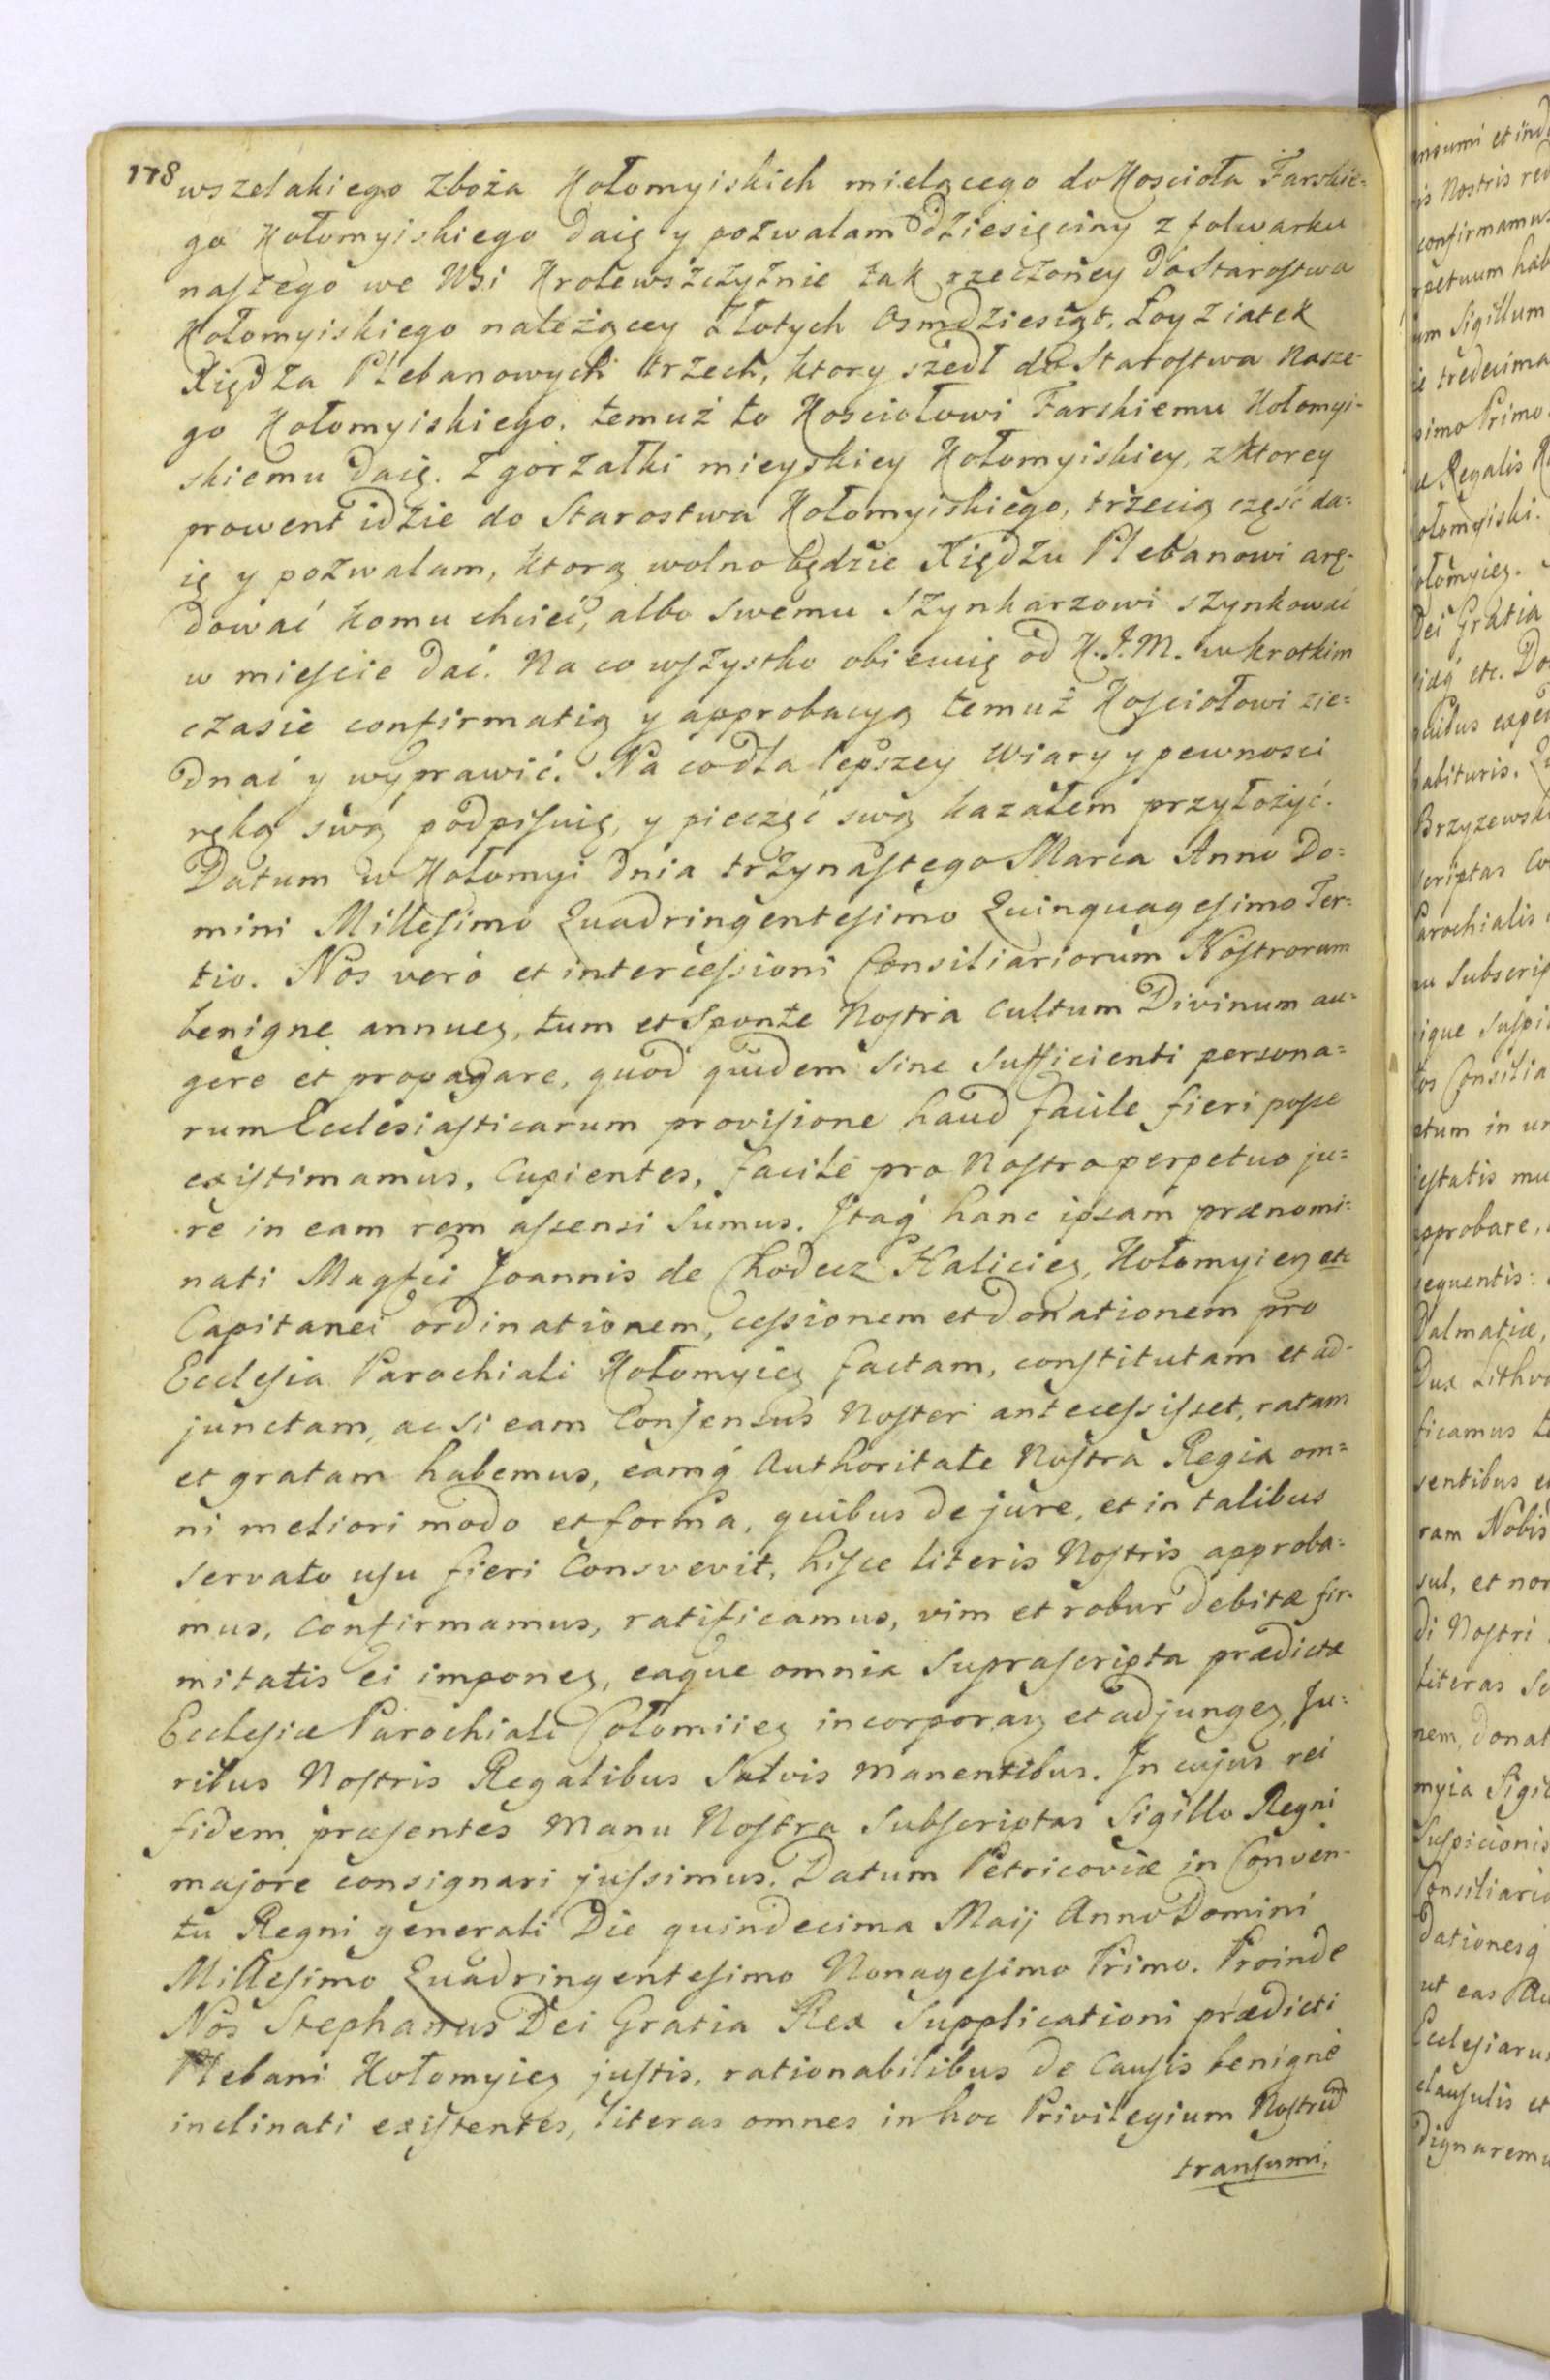 178
wszelakiego zboża Kołomyiskich mielącego do Koscioła Farskie=
go Kołomyiskiego daię y pozwalam dziesięciny z folwarku
naszego we Wsi Krolewszczyznie tak rzeczoney do Starostwa
Kołomyiskiego należącey złotych Osmdziesiąt. Łoy z iatek
Xiędza Plebanowych trzech, ktory szedł do Starostwa Nasze-
go Kołomyiskiego. temuż to Kosciołowi Farskiemu Kołomyi-
skiemu daię. Z gorzałki mieyskiey Kołomyiskiey, z ktorey
prowent idzie do Starostwa Kołomyiskiego, trzecią część da=
ię y pozwalam, ktorą wolno będzie Xiędzu Plebanowi arę-
dować komu chcieć, albo swemu szynkarzowi szynkować
w mieście dać. Na co wszystko obiecuię od K.J.M. w krotkim
czasie confirmatią y approbacyą temuż Kościołowi zie=
dnać y wyprawić. Na co dla lepszey wiary y pewnosci
ręką swą podpisuię, y pieczęć swą kazałem przyłożyć.
Datum w Kołomyi dnia trzynastego Marca Anno Do=
mini Millesimo Quadringentesimo Quinquagesimo Ter=
tio. Nos verò et intercessioni Consiliariorum Nostrorum
benigne annueʒ, tum et Sponte Nostra Cultum Divinum au=
gere et propagare, quod quidem sine Sufficienti persona=
rum Ecclesiasticarum provisione haud facile fieri posse
existimamus, Cupientes, facile pro Nostro perpetuo ju=
re in eam rem assensi Sumus. Itaq́ hanc ipsam prænomi=
nati Magfci Joannis de Chodecz Halicieʒ, Kołomyieʒ etc
Capitanei ordinationem, cessionem et donationem pro
Ecclesia Parochiali Kołomyieʒ factam, constitutam et ad-
junctam, ac si eam Consensus Noster antecessisset, ratam
et gratam habemus, eamq́ Authoritate Nostra Regia om=
ni meliori modo et forma, quibus de jure, et in talibus
servato usu fieri Consvevit, hisce literis Nostris approba=
mus, Confirmamus, ratificamus, vim et robur debitæ fir-
mitatis ei imponeʒ, eaque omnia Suprascripta prædictæ
Ecclesiæ Parochiali Colomiieʒ incorporaʒ et adjungeʒ, Ju=
ribus Nostris Regalibus Salvis manentibus. In cujus rei
fidem præsentes Manu Nostra Subscriptas Sigillo Regni
majore consignari jussimus. Datum Petricoviæ in Conven-
tu Regni generali Die quindecima Maij Anno Domini
Millesimo Quadringentesimo Nonagesimo Primo. Proinde
Nos Stephanus Dei Gratia Rex Supplicationi prædicti
Plebani Kołomyieʒ justis, rationabilibus de Causis benignè
inclinati existentes, literas omnes in hoc Privilegium Nostrum
transumi,